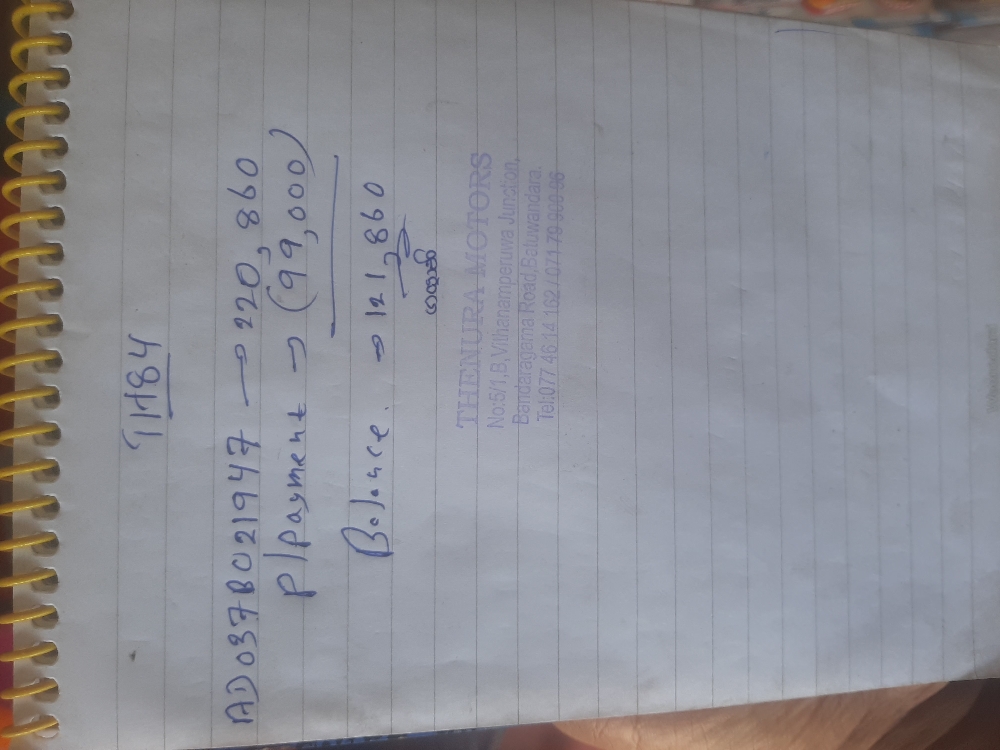 TH84
AD037BC021947 → 220,860
P/Payment → (99,000)
Balance. → 121,860
THENURA MOTORS
No:5/1,B,Vithanamperuwa Junction,
Bandaragama Road,Batuwandara.
Tel:077 46 14 162 / 071 79 969 96